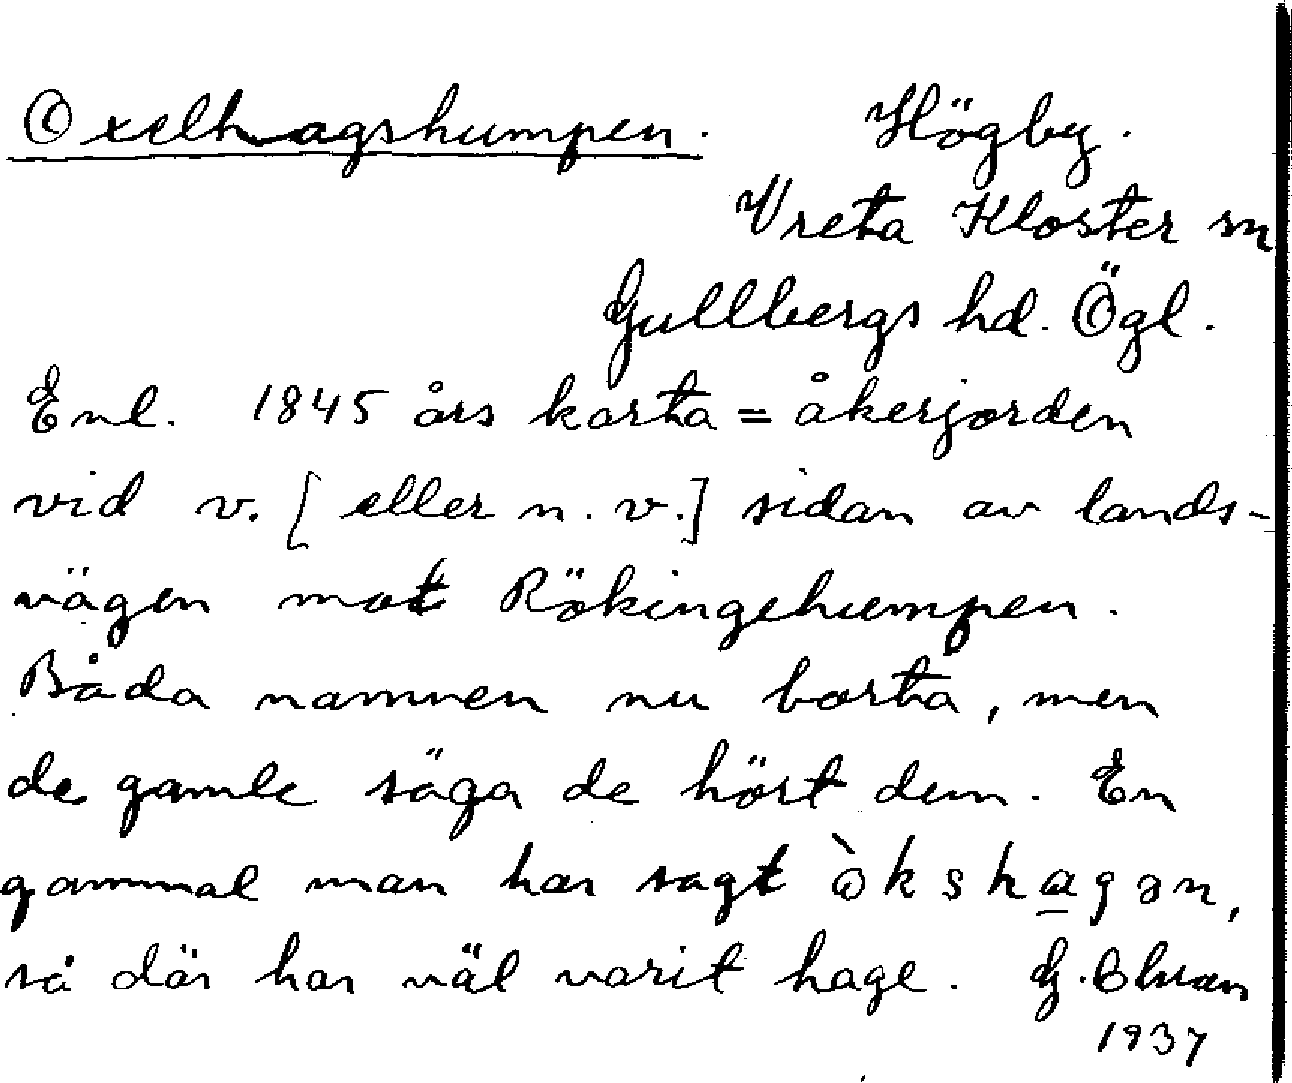 Oxelhagshumpen. Högby.
Vreta Kloster sn
Gullbergs hd. Ögl.
Enl. 1845 års karta = åkerjorden
vid v. [eller n. v.] sidan av lands-
vägen mot Rökingehumpen.
Båda namnen nu borta, men
de gamle säga de hört dem. En
gammal man har sagt òkshagən,
så där har väl varit hage. G.
1937